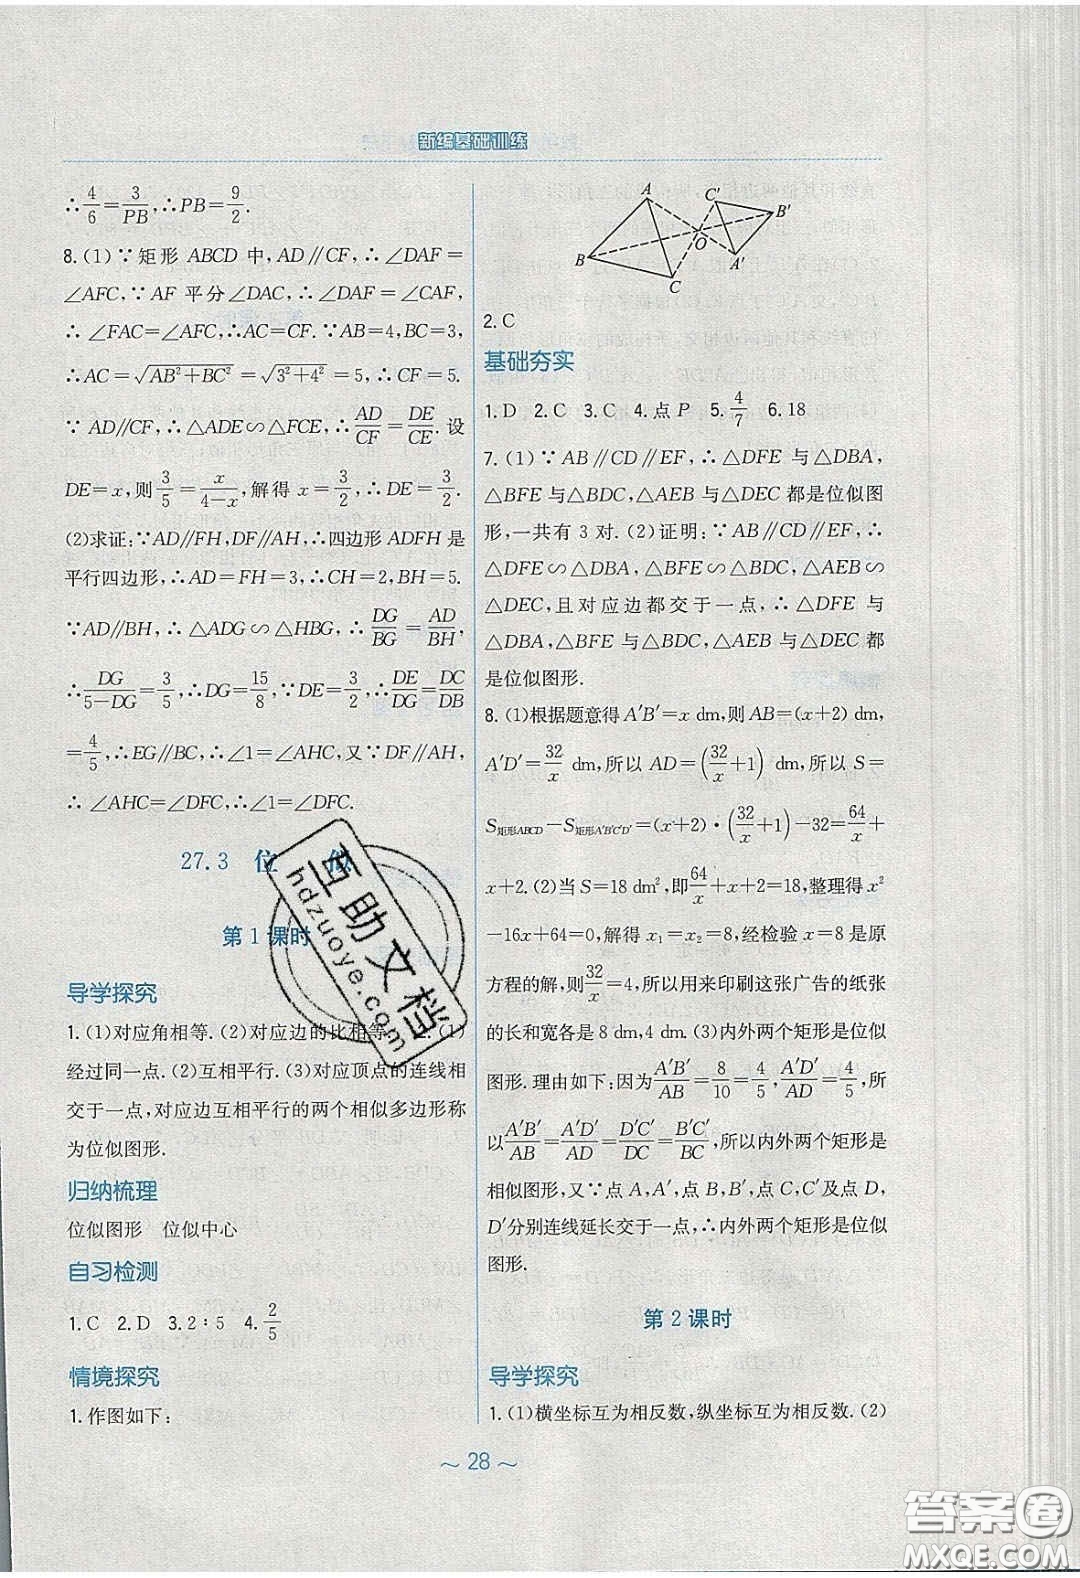 新编基础训练
∴4/6=3/PB,∴PB=9/2.
8.(1)∵矩形 ABCD 中,AD∥CF,∴∠DAF=
∠AFC,∵AF 平分∠DAC,∴∠DAF=∠CAF,
∴∠FAC=∠AFC,∴AC=CF.∵AB=4,BC=3,
∴AC=√(AB²+BC²)=√(3²+4²)=5,∴CF=5.
∵AD∥CF,∴△ADE∽△FCE,∴AD/CF=DE/CE.设
DE=x,则3/5=x/(4-x),解得 x=3/2,∴DE=3/2.
(2)求证:∵AD∥FH,DF∥AH,∴四边形 ADFH 是
平行四边形,∴AD=FH=3,∴CH=2,BH=5.
∵AD∥BH,∴△ADG∽△HBG,∴DG/BG=AD/BH,
∴DG/(5-DG)=3/5,∴DG=15/8,∵DE=3/2,∴DE/DG=DC/DB
=4/5,∴EG∥BC,∴∠1=∠AHC,又∵DF∥AH,
∴∠AHC=∠DFC,∴∠1=∠DFC.
27.3 位 似
第 1 课时
导学探究
1.(1)对应角相等.(2)对应边的比相等. (1)
经过同一点.(2)互相平行.(3)对应顶点的连线相
交于一点,对应边互相平行的两个相似多边形称
为位似图形.
归纳梳理
位似图形 位似中心
自习检测
1.C 2.D 3.2∶5 4.2/5
情境探究
1.作图如下:
A
C′
B′
O
B
A′
C
2.C
基础夯实
1.D 2.C 3.C 4.点 P 5.4/7 6.18
7.(1)∵AB∥CD∥EF,∴△DFE 与△DBA,
△BFE 与△BDC,△AEB 与△DEC 都是位似图
形,一共有 3 对.(2)证明:∵AB∥CD∥EF,∴
△DFE∽△DBA,△BFE∽△BDC,△AEB∽
△DEC,且对应边都交于一点,∴△DFE 与
△DBA,△BFE 与△BDC,△AEB 与△DEC 都
是位似图形.
8.(1)根据题意得 A′B′=x dm,则 AB=(x+2) dm,
A′D′=32/x dm,所以 AD=(32/x+1) dm,所以 S=
S矩形ABCD-S矩形A′B′C′D′=(x+2)·(32/x+1)-32=64/x+
x+2.(2)当 S=18 dm²,即64/x+x+2=18,整理得 x²
-16x+64=0,解得 x₁=x₂=8,经检验 x=8 是原
方程的解,则32/x=4,所以用来印刷这张广告的纸张
的长和宽各是 8 dm,4 dm.(3)内外两个矩形是位似
图形.理由如下:因为A′B′/AB=8/10=4/5,A′D′/AD=4/5,所
以A′B′/AB=A′D′/AD=D′C′/DC=B′C′/BC,所以内外两个矩形是
相似图形,又∵点 A,A′,点 B,B′,点 C,C′及点 D,
D′分别连线延长交于一点,∴内外两个矩形是位似
图形.
第 2 课时
导学探究
1.(1)横坐标互为相反数,纵坐标互为相反数.(2)
～ 28 ～
互助文档
hdzuoye.com
答案圈
MXQE.COM